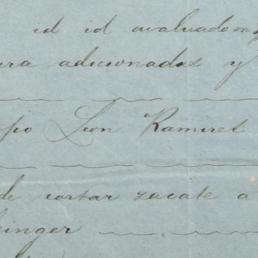 id id avaluadom
ura adicionadas y
pio Leon Ramirez
de cortar zacate a
inger